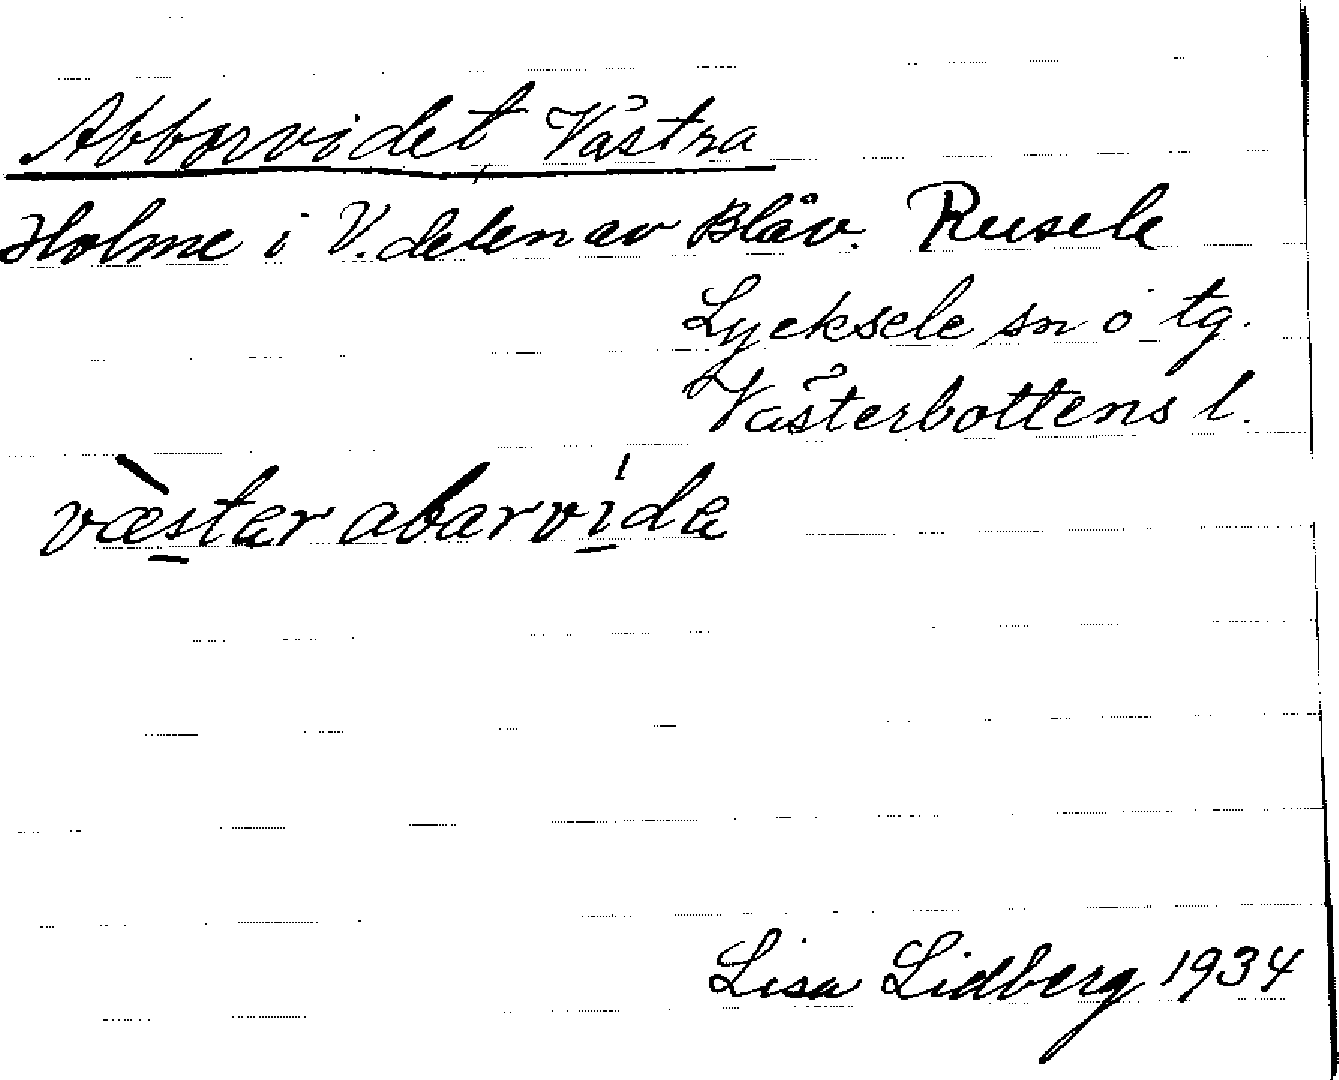 Abborvidet, Västra
Holme i V. delen av Blåv. Rusele
Lycksele sn o tg.
Västerbottens l.
væ̀star abarvida
Lisa Lidberg 1934